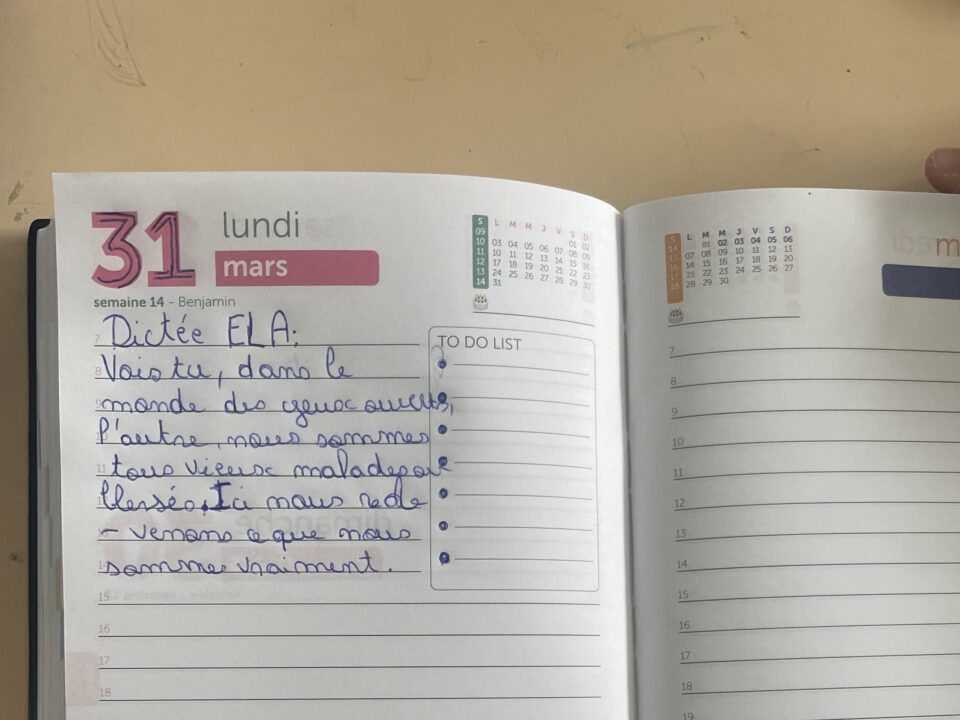 31 lundi
mars
semaine 14 - Benjamin
S L M M J V S D
09 01 02
10 03 04 05 06 07 08 09
11 10 11 12 13 14 15 16
12 17 18 19 20 21 22 23
13 24 25 26 27 28 29 30
14 31
TO DO LIST
7 Dictée ELA:
8 Vois tu, dans le
9 monde des yeux ouverts,
l'autre, nous sommes
11 tous vieux malades ou
blessés. Ici nous rede
- venons ce que nous
14 somme vraiment.
15
16
17
18
S L M M J V S D
14 01 02 03 04 05 06
07 08 09 10 11 12 13
14 15 16 17 18 19 20
17 21 22 23 24 25 26 27
18 28 29 30
7
8
9
10
11
12
13
14
15
16
17
18
19